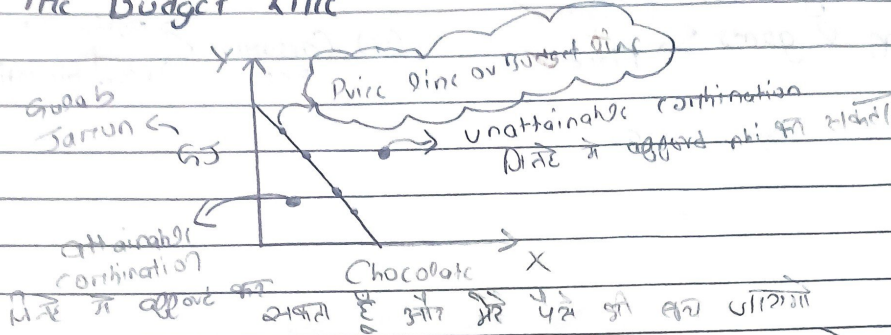 The Budget Line
Y
Price line or Budget line
Gulab
Jamun
GJ
unattainable combination
जिन्हे मै afford नही कर सकता
attainable
combination
Chocolate
X
जिन्हे मै afford कर सकता हूँ और मेरे पैसे भी बच जाएंगे